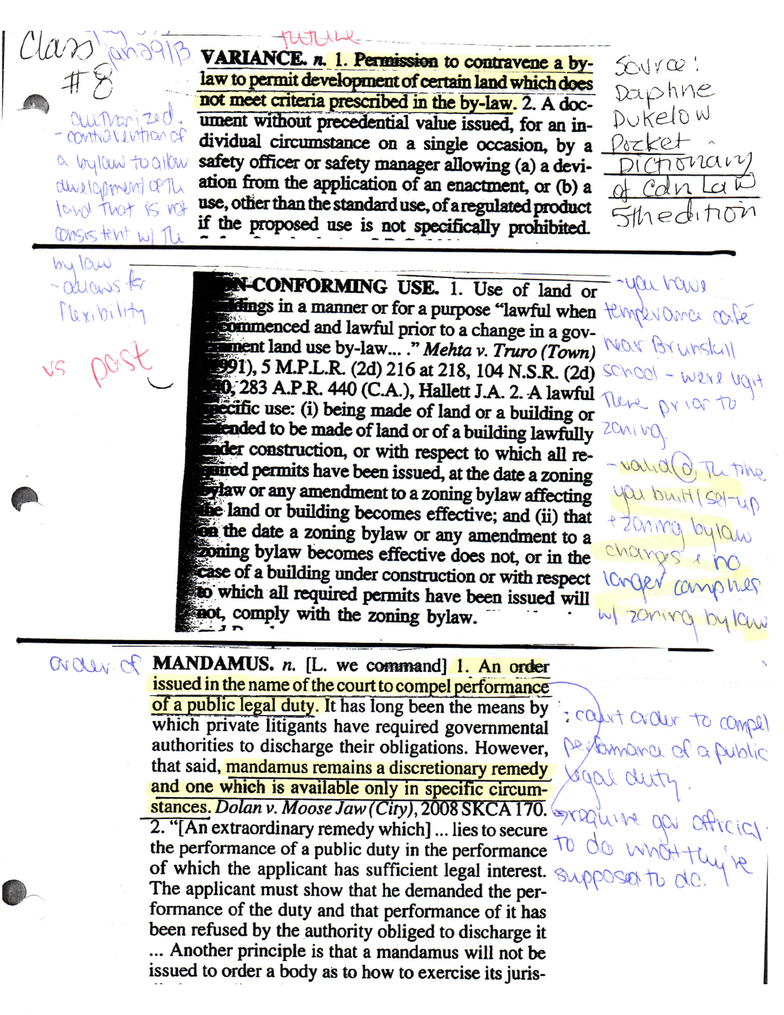 Class
#8
Jan 29/13
future
VARIANCE. n. 1. Permission to contravene a by-
law to permit development of certain land which does
not meet criteria prescribed in the by-law. 2. A doc-
ument without precedential value issued, for an in-
dividual circumstance on a single occasion, by a
safety officer or safety manager allowing (a) a devi-
ation from the application of an enactment, or (b) a
use, other than the standard use, of a regulated product
if the proposed use is not specifically prohibited.
Source:
Daphne
Dukelow
Pocket
Dictionary
of Cdn Law
5th edition
authorized.
- contravention of
a bylaw to allow
development of the
land that is not
consistent w/ the
by law
- allows for
flexibility
vs past
N-CONFORMING USE. 1. Use of land or
dings in a manner or for a purpose “lawful when
commenced and lawful prior to a change in a gov-
ment land use by-law... .” Mehta v. Truro (Town)
991), 5 M.P.L.R. (2d) 216 at 218, 104 N.S.R. (2d)
0, 283 A.P.R. 440 (C.A.), Hallett J.A. 2. A lawful
ecific use: (i) being made of land or a building or
ended to be made of land or of a building lawfully
der construction, or with respect to which all re-
ired permits have been issued, at the date a zoning
bylaw or any amendment to a zoning bylaw affecting
the land or building becomes effective; and (ii) that
on the date a zoning bylaw or any amendment to a
zoning bylaw becomes effective does not, or in the
case of a building under construction or with respect
to which all required permits have been issued will
not, comply with the zoning bylaw.
- you have
temperance café
near Brunskill
school - were legit
there prior to
zoning.
- valid @ the time
you built/set-up
+ zoning bylaw
changes + no
longer complies
w/ zoning bylaw
order of
MANDAMUS. n. [L. we command] 1. An order
issued in the name of the court to compel performance
of a public legal duty. It has long been the means by
which private litigants have required governmental
authorities to discharge their obligations. However,
that said, mandamus remains a discretionary remedy
and one which is available only in specific circum-
stances. Dolan v. Moose Jaw (City), 2008 SKCA 170.
2. “[An extraordinary remedy which] ... lies to secure
the performance of a public duty in the performance
of which the applicant has sufficient legal interest.
The applicant must show that he demanded the per-
formance of the duty and that performance of it has
been refused by the authority obliged to discharge it
... Another principle is that a mandamus will not be
issued to order a body as to how to exercise its juris-
: court order to compel
performance of a public
legal duty.
- require gov official
to do what they're
supposed to do.